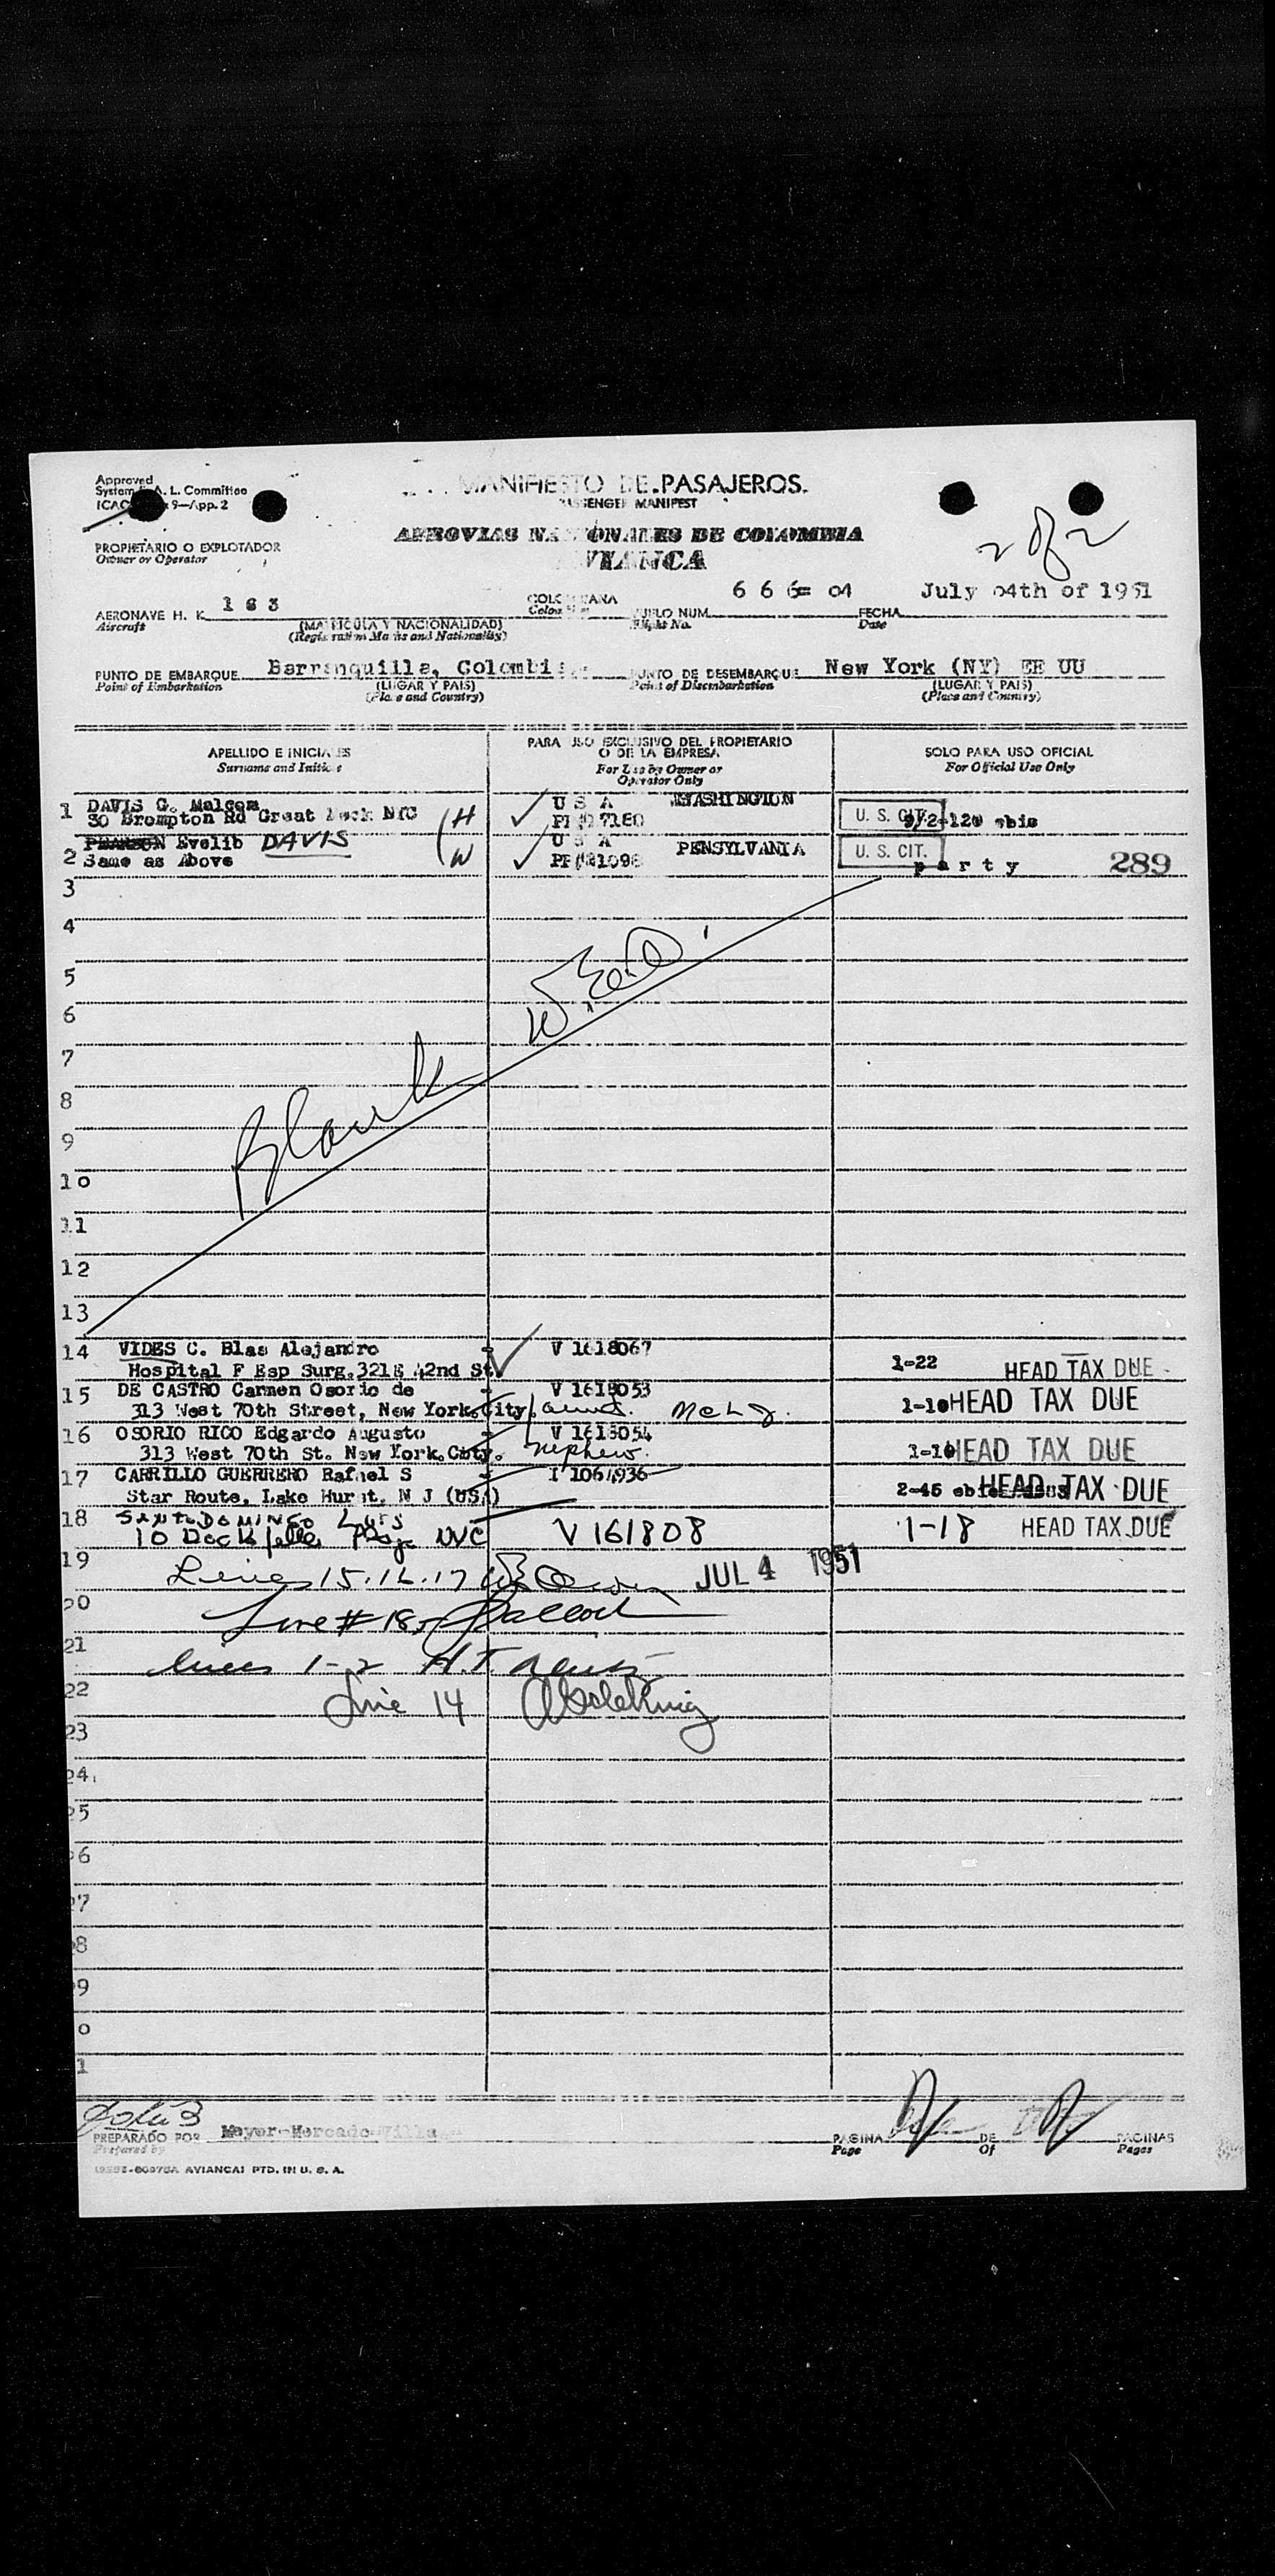 Approved
System A. L. Committee
ICAO 9—App. 2
MANIFIESTO DE PASAJEROS.
PASSENGER MANIFEST
AEROVIAS NACIONALES DE COLOMBIA
AVIANCA
2 of 2
PROPIETARIO O EXPLOTADOR
Owner or Operator
AERONAVE H. K. 163 COLOMBIANA VUELO NUM. 6 6 6= 04 FECHA July 04th of 1951
Aircraft (MATRICULA Y NACIONALIDAD) Colombian Flight No. Date
(Registration Marks and Nationality)
PUNTO DE EMBARQUE Barranquilla, Colombia PUNTO DE DESEMBARQUE New York (NY) EE UU
Point of Embarkation (LUGAR Y PAIS) Point of Disembarkation (LUGAR Y PAIS)
(Place and Country) (Place and Country)
APELLIDO E INICIALES PARA USO EXCLUSIVO DEL PROPIETARIO O DE LA EMPRESA SOLO PARA USO OFICIAL
Surname and Initials For Use by Owner or Operator Only For Official Use Only
1 DAVIS G. Malcom U S A WASHINGTON U. S. CIT.
30 Brompton Rd Great Neck NYC (H
PEARSON Evelib DAVIS U S A PENSYLVANIA U. S. CIT.
2 Same as Above (W party 289
3
4
5
6
7
8
9
10
11
12
13
Blank
14 VIDES C. Blas Alejandro V 1618067
Hospital F Esp Surg. 321E 42nd St 1-22 HEAD TAX DUE
15 DE CASTRO Carmen Osorio de V 1618053
313 West 70th Street, New York City aunt. 1-10 HEAD TAX DUE
16 OSORIO RICO Edgardo Augusto V 1618054
313 West 70th St. New York. City. nephew. 1-10 HEAD TAX DUE
17 CARRILLO GUERRERO Rafael S I 1064936
Star Route, Lake Hurst, N J (USA) 2-45 HEAD TAX DUE
18 SANTODOMINGO Luis
10 Rockfeller Plaza NYC V 161808 1-18 HEAD TAX DUE
19 Lines 15.16.17 JUL 4 1951
20 Line # 18
21 lines 1-2
22 Line 14
23
24
25
26
27
28
29
30
31
PREPARADO POR Meyer-Mercado-Villa PAGINA DE PAGINAS
Prepared by Page Of Pages
AVIANCA PTD. IN U. S. A.